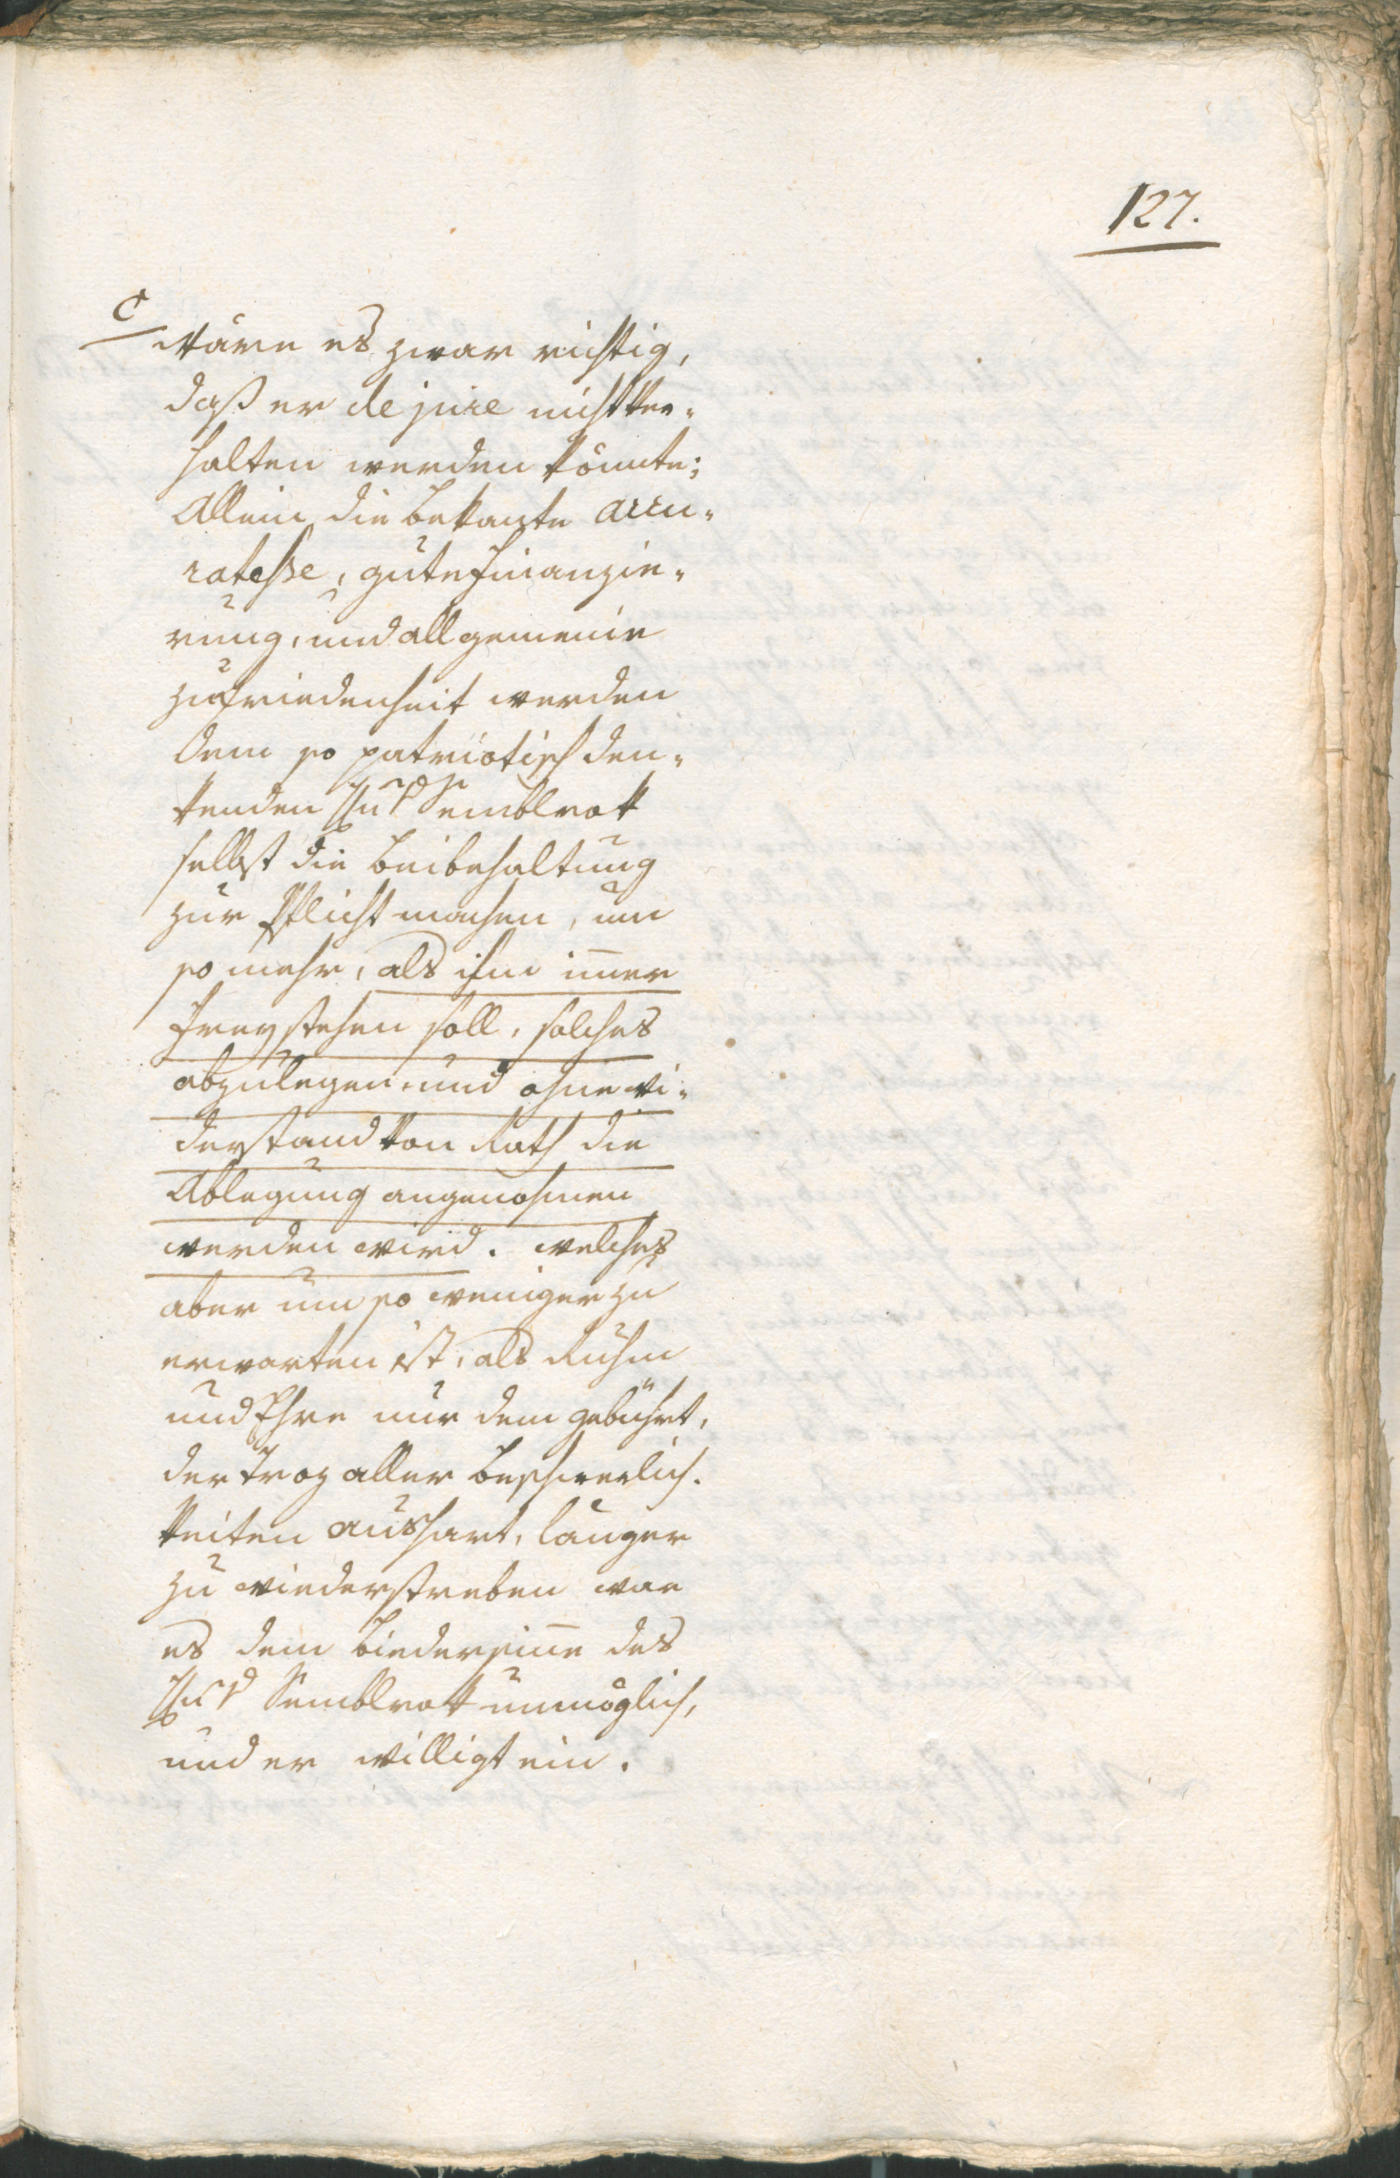 127.
C
Wäre es zwar richtig,
daß er de jure nicht ver-
halten werden könnte;
Allein die bekante accu-
ratesse, gute Finanzie-
rung, und allgemeine
Zufriedenheit werden
dem so patriotisch den-
kenden Semblrok
selbst die Beibehaltung
zur Pflicht machen, um
so mehr, als ihm im̅er
freystehen soll, solches
abzulegen, und ohne wi-
derstand von Rath die
Ablegung angenohmen
werden wird. welches
aber um so weniger zu
erwarten ist, als Ruhm
und Ehre nur dem gebührt,
der troz aller beschwerlich-
keiten aushart, länger
zu wiederstreben war
es dem Biedersin̅e des
Semblrok unmöglich,
und er willigt ein.